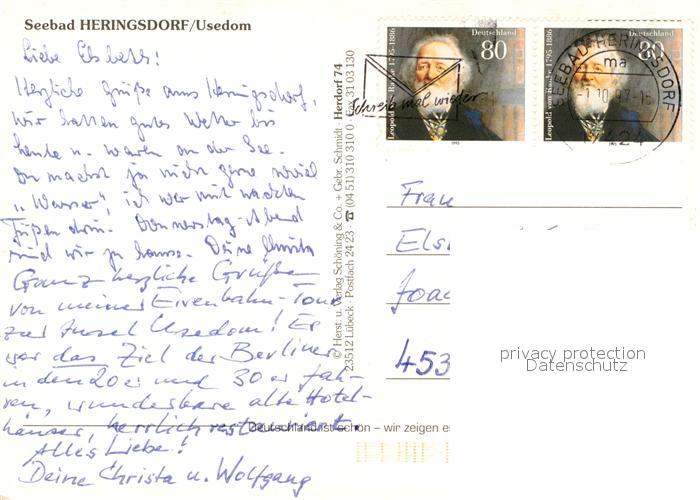 Seebad HERINGSDORF/Usedom
Liebe Elsbeth!
Herzliche Grüße aus Heringsdorf,
wir hatten gutes Wetter bis
heute u. waren an der See.
Du machst ja nicht gerne soviel
"Wasser", ich war mit nackten
Füßen drin. Donnerstag-Abend
sind wir zu hause. Deine Christa
Ganz herzliche Grüße
von meiner Eisenbahn-Tour
zur Insel Usedom! Es
war das Ziel der Berliner
in den 20er und 30er Jah-
ren, wunderbare alte Hotel-
häuser, herrlich restauriert.
Alles Liebe!
Deine Christa u. Wolfgang
© Herst. u. Verlag Schöning & Co. + Gebr. Schmidt · Herdorf 74
23512 Lübeck · Postfach 24 23 · ☎ (04 51) 310 310 0 · 31 03 130
Deutschland ist schön – wir zeigen es
Leopold von Ranke 1795-1886
Deutschland
80
1995
Leopold von Ranke 1795-1886
Deutschland
80
1995
Schreib mal wieder
SEEBAD HERINGSDORF
ma
Frau
Els
Joac
453
privacy protection
Datenschutz